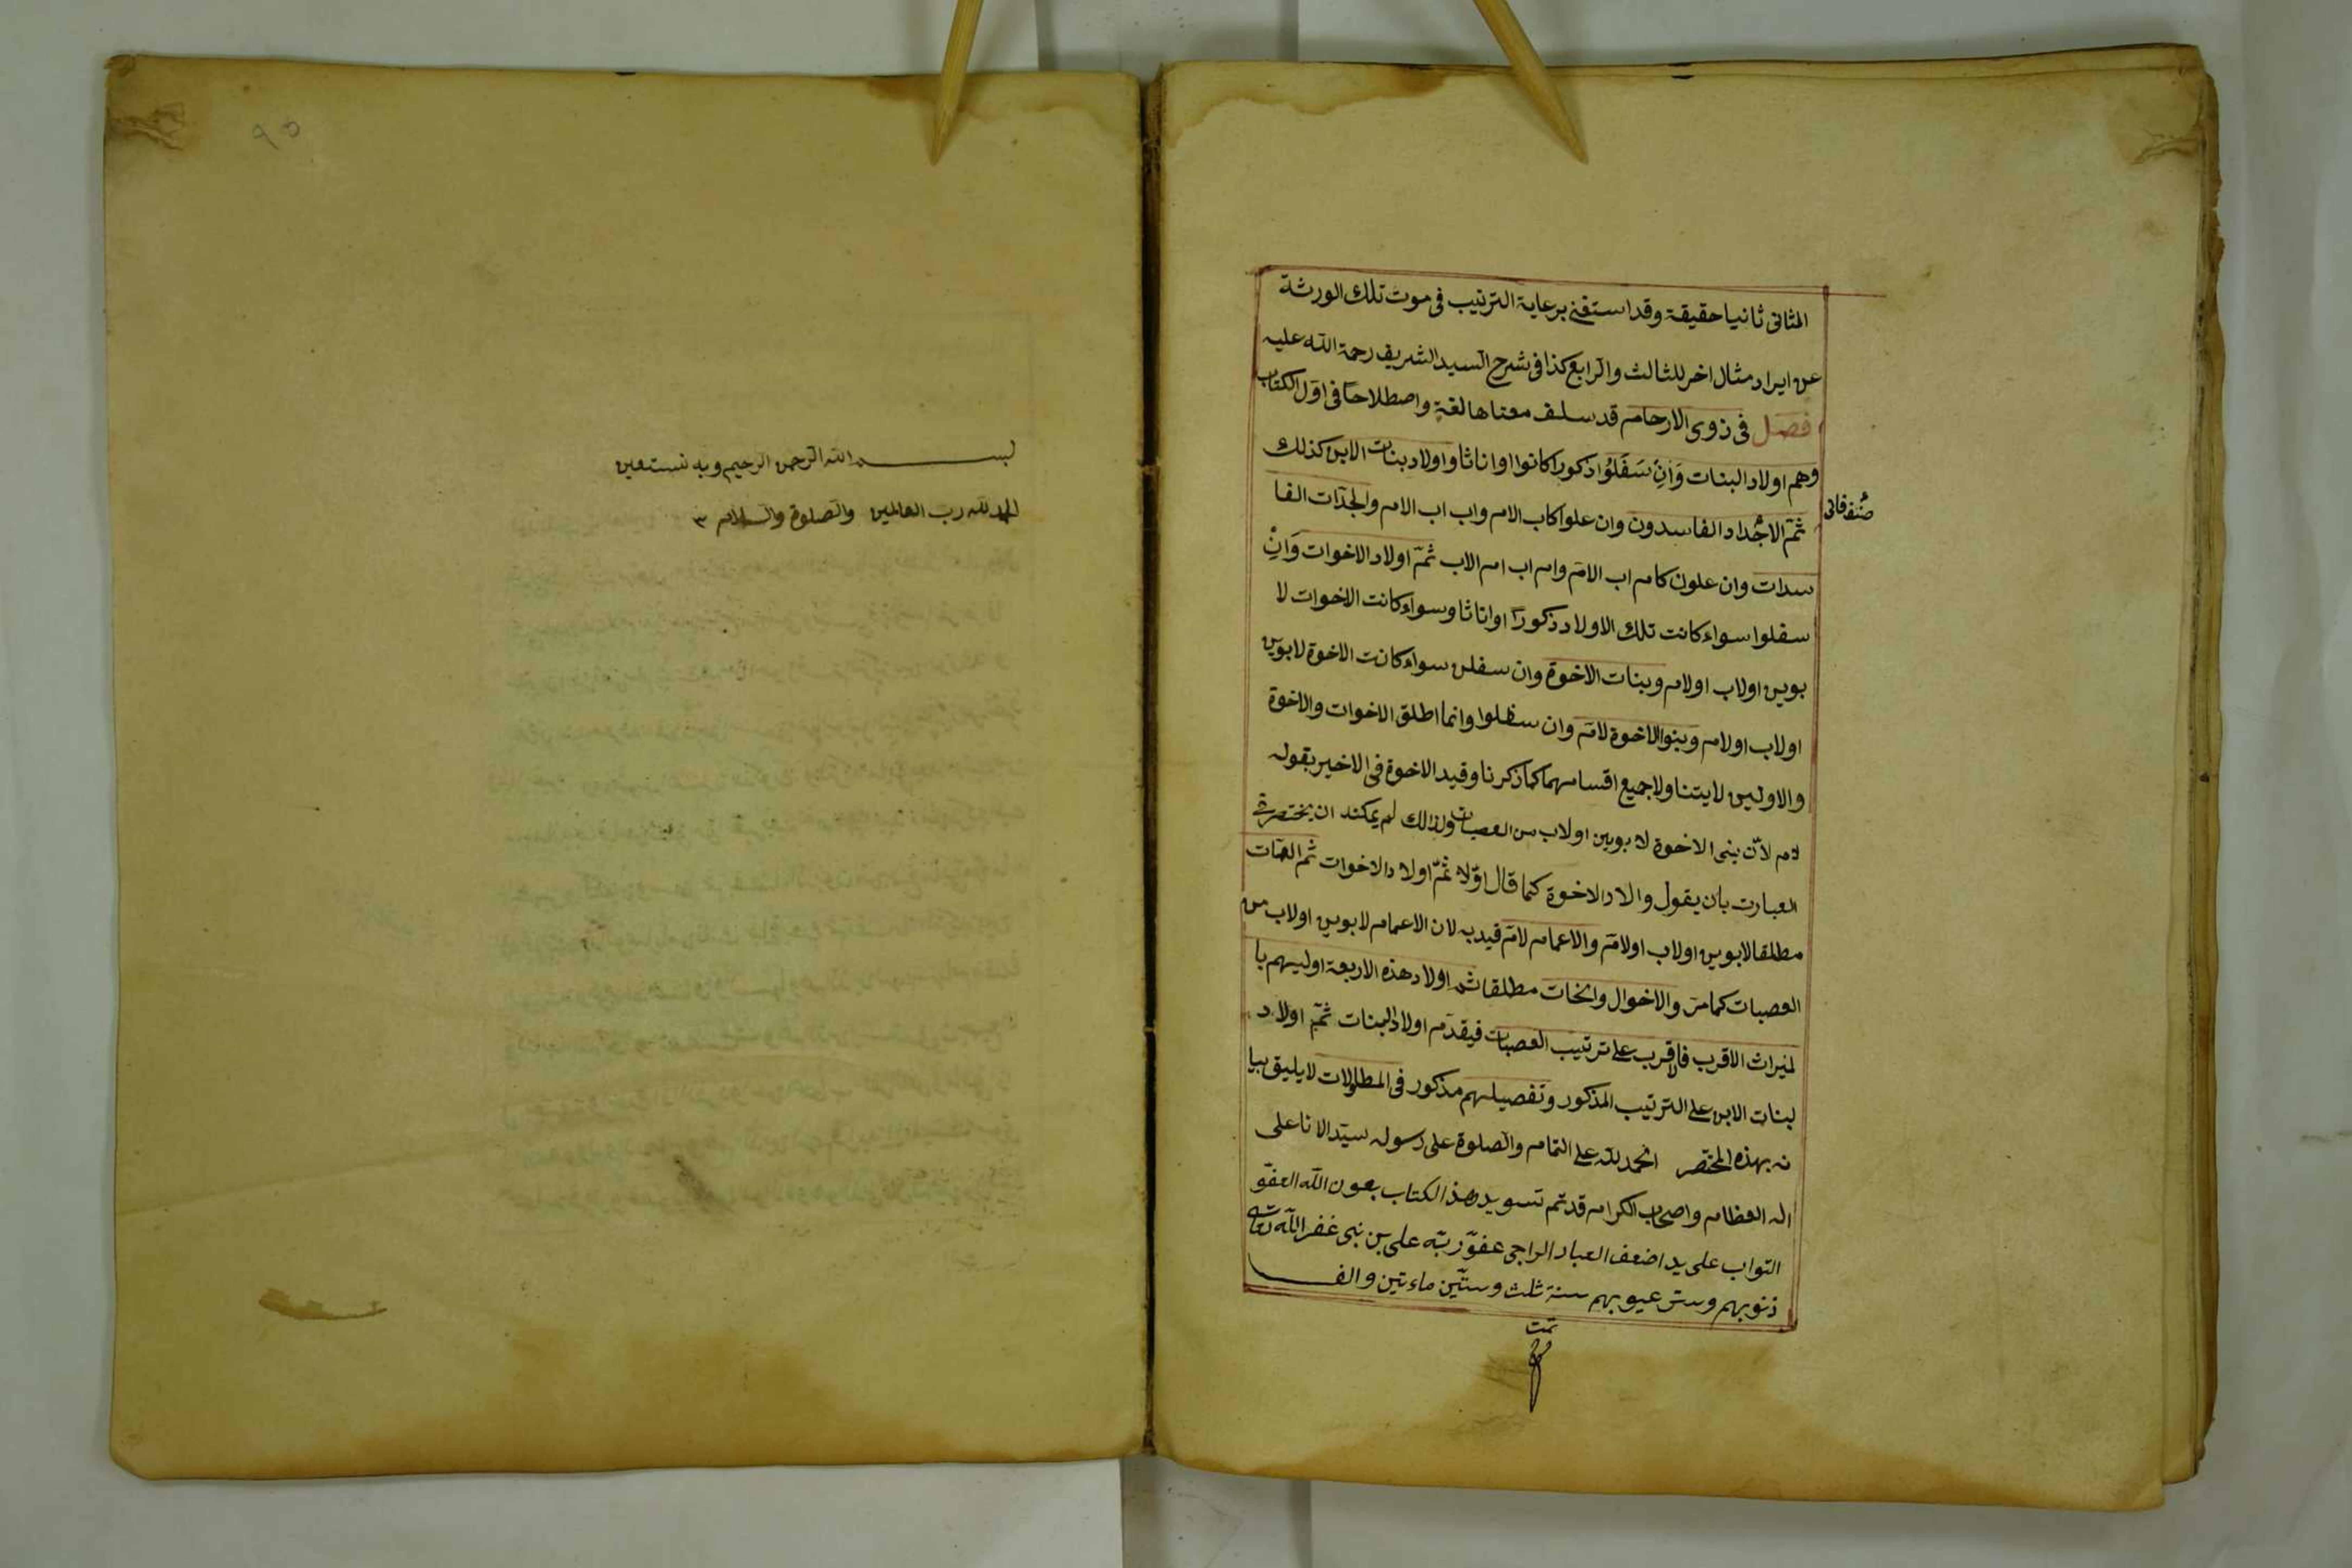 المثانى ثانيا حقيقة وقد استغنى برعاية الترتيب فى موت تلك الورثة
عن ايراد مثال اخر للثالث والرابع كذا فى شرح السيد الشريف رحمة الله عليه
فصل فى زوى الارحام قد سلف معناها لغة واصطلاحا فى اول الكتاب
وهم اولاد البنات وَاِنْ سَفَلُوُا ذكورا كانوا او اناثا واولاد بنات الابن كذلك
ثمّ الاجُداد الفاسدون وان علوا كاب الام واب اب الام والجدّات الفا
صُنف ثانى
سدات وان علون كام اب الامّ وام اب ام الاب ثمّ اولاد الاخوات وَاِنْ
سفلوا سواء كانت تلك الاولاد ذكورًا او اناثا وسواء كانت الاخوات لا
بوين اولاب اولام وبنات الاخوة وان سفلن سواء كانت الاخوة لابوين
اولاب اولام وبنوا الاخوة لامّ وان سفلوا وانما اطلق الاخوات والاخوة
والاولين لايتناولا جميع اقسامهما كما ذكرنا وقيد الاخوة فى الاخير بقوله
لام لانّ بنى الاخوة لابوين اولاب من العصبات ولذالك لم يمكنه ان يختصر فى
العبارت بان يقول والاد الاخوة كما قال اوّلا ثمّ اولاد الاخوات ثم العمّات
مطلقا لابوين اولاب اولامّ والاعمام لامّ قيد به لان الاعمام لابوين اولاب من
العصبات كما مرّ والاخوال والخات مطلقا ثم اولاد هذه الاربعة اوليهم با
لميراث الاقرب فالاقرب على ترتيب العصبات فيقدّم اولاد البنات ثمّ اولاد
بنات الابن على الترتيب المذكور وتفصيلهم مذكور فى المطولات لايليق بيا
نه بهذه المختصر الحمد لله على التمام والصلوة على رسوله سيّد الانا على
اله العظام واصحاب الكرام قد تم تسويد هذ الكتاب بعون الله العفوّ
التواب على يد اضعف العباد الراجى عفوّ ربّه على بن نبى غفر الله تعالى
ذنوبهم وستر عيوبهم سنة ثلث وستّين ماءتين والف
تمت
٩٥
بسم الله الرحمن الرحيم وبه نستعين
الحمد لله رب العالمين والصلوة والسلام ٣